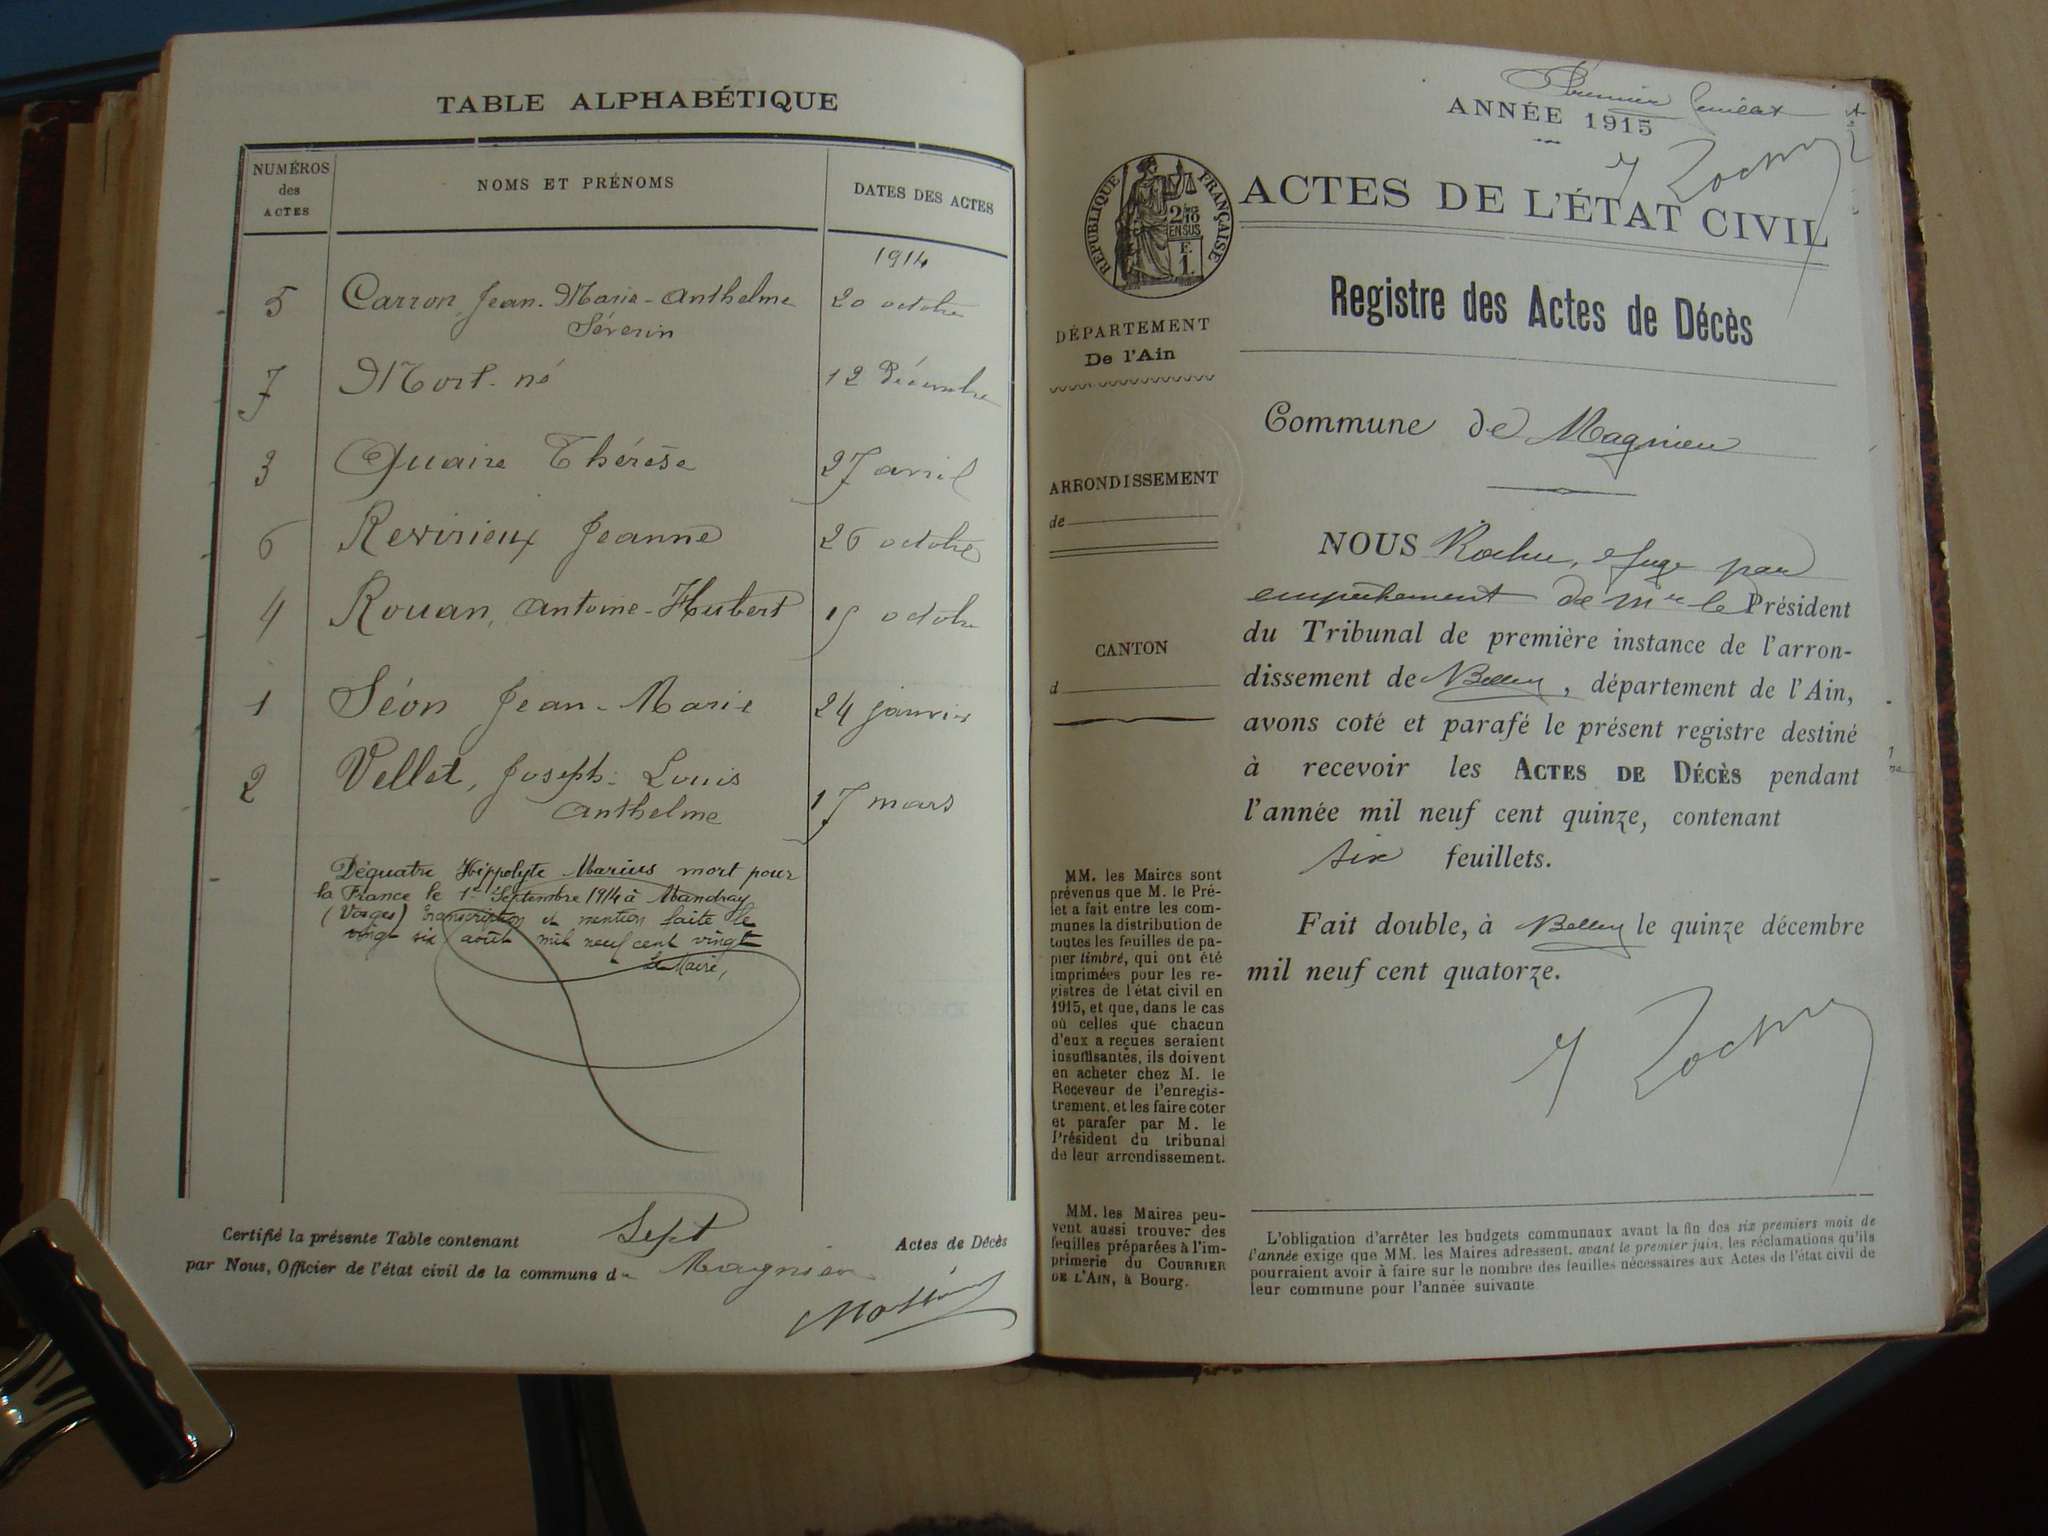 TABLE ALPHABÉTIQUE
NUMÉROS des ACTES
NOMS ET PRÉNOMS
DATES DES ACTES
1914
5 Carron, Jean-Marie-Anthelme 20 octobre
Séverin
7 Mort-né 12 Décembre
3 Quaire Thérèse 27 avril
6 Revirieux Jeanne 26 octobre
4 Rouan, Antoine-Hubert 15 octobre
1 Séon Jean-Marie 24 janvier
2 Vellet, Joseph-Louis 17 mars
Anthelme
Déquatre Hippolyte Marius mort pour
la France le 1er Septembre 1914 à Mandray
(Vosges) transcription et mention faite le
vingt six août mil neuf cent vingt
Le Maire,
Certifié la présente Table contenant Sept Actes de Décès
par Nous, Officier de l'état civil de la commune de Magnieu
Premier feuillet
ANNÉE 1915
RÉPUBLIQUE FRANÇAISE
2/10 EN SUS
F. 1.
ACTES DE L'ÉTAT CIVIL
Registre des Actes de Décès
DÉPARTEMENT
De l'Ain
Commune de Magnieu
ARRONDISSEMENT
de
CANTON
d
NOUS Rochu, Juge par
empêchement de Mr le Président
du Tribunal de première instance de l'arron-
dissement de Belley, département de l'Ain,
avons coté et parafé le présent registre destiné
à recevoir les ACTES DE DÉCÈS pendant
l'année mil neuf cent quinze, contenant
six feuillets.
Fait double, à Belley le quinze décembre
mil neuf cent quatorze.
MM. les Maires sont
prévenus que M. le Pré-
fet a fait entre les com-
munes la distribution de
toutes les feuilles de pa-
pier timbré, qui ont été
imprimées pour les re-
gistres de l'état civil en
1915, et que, dans le cas
où celles que chacun
d'eux a reçues seraient
insuffisantes, ils doivent
en acheter chez M. le
Receveur de l'enregis-
trement, et les faire coter
et parafer par M. le
Président du tribunal
de leur arrondissement.
MM. les Maires peu-
vent aussi trouver des
feuilles préparées à l'im-
primerie du COURRIER
DE L'AIN, à Bourg.
L'obligation d'arrêter les budgets communaux avant la fin des six premiers mois de
l'année exige que MM. les Maires adressent, avant le premier juin, les réclamations qu'ils
pourraient avoir à faire sur le nombre des feuilles nécessaires aux Actes de l'état civil de
leur commune pour l'année suivante